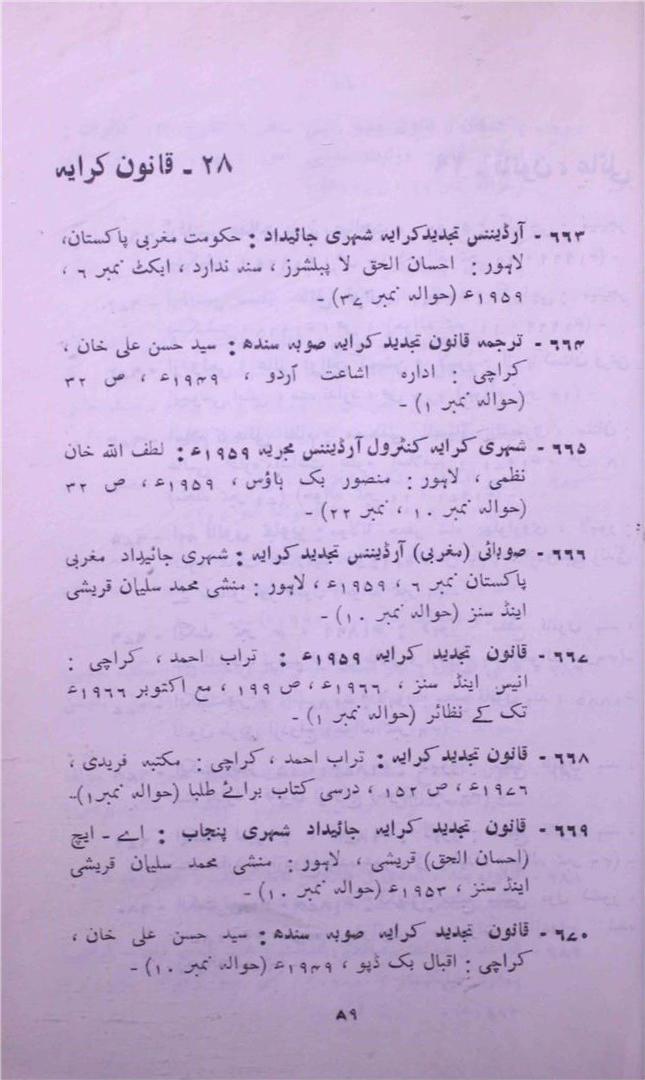 ۲۸ - قانون کرایہ
۶۶۳ - آرڈیننس تجدید کرایہ شہری جائیداد : حکومت مغربی پاکستان،
لاہور : احسان الحق لا پبلشرز ، سند ندارد ، ایکٹ نمبر ۶ ،
۱۹۵۹ء (حوالہ نمبر ۳۷) -
۶۶۴ - ترجمہ قانون تجدید کرایہ صوبہ سندھ : سید حسن علی خان ،
کراچی : ادارہ اشاعت اردو ، ۱۹۴۹ء ، ص ۳۲
(حوالہ نمبر ۱) -
۶۶۵ - شہری کرایہ کنٹرول آرڈیننس مجریہ ۱۹۵۹ء : لطف اللہ خان
نظمی ، لاہور : منصور بک ہاؤس ، ۱۹۵۹ء ، ص ۳۲
(حوالہ نمبر ۱۰ ، نمبر ۲۲) -
۶۶۶ - صوبائی (مغربی) آرڈیننس تجدید کرایہ : شہری جائیداد مغربی
پاکستان نمبر ۶ ، ۱۹۵۹ء ، لاہور : منشی محمد سلیمان قریشی
اینڈ سنز (حوالہ نمبر ۱۰) -
۶۶۷ - قانون تجدید کرایہ ۱۹۵۹ء : تراب احمد ، کراچی :
انیس اینڈ سنز ، ۱۹۶۶ء ، ص ۱۹۹ ، مع اکتوبر ۱۹۶۶ء
تک کے نظائر (حوالہ نمبر ۱) -
۶۶۸ - قانون تجدید کرایہ : تراب احمد ، کراچی : مکتبہ فریدی ،
۱۹۷۶ء ، ص ۱۵۲ ، درسی کتاب برائے طلبا (حوالہ نمبر۱)-
۶۶۹ - قانون تجدید کرایہ جائیداد شہری پنجاب : اے - ایچ
(احسان الحق) قریشی ، لاہور : منشی محمد سلیمان قریشی
اینڈ سنز ، ۱۹۵۳ء (حوالہ نمبر ۱۰) -
۶۷۰ - قانون تجدید کرایہ صوبہ سندھ : سید حسن علی خان ،
کراچی : اقبال بک ڈپو ، ۱۹۴۹ء (حوالہ نمبر ۱۰) -
۸۹